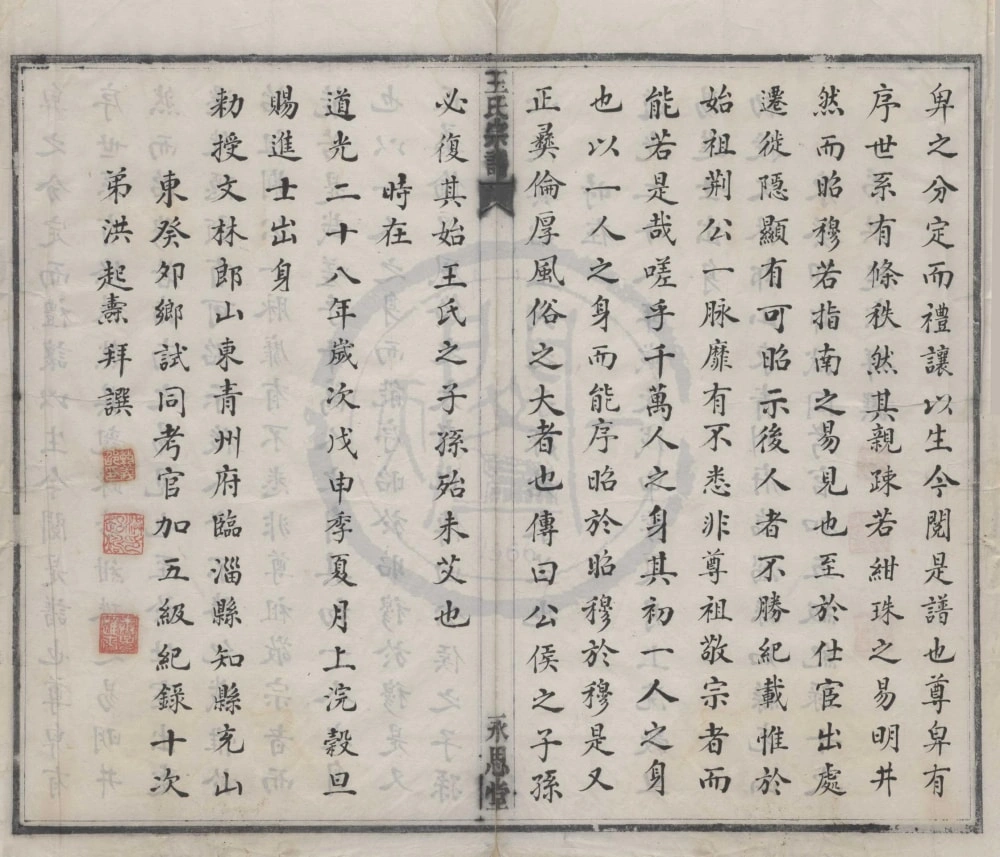 卑之分定而禮讓以生今閱是譜也尊卑有
序世系有條秩然其親疎若紺珠之易明井
然而昭穆若指南之易見也至於仕宦出處
遷徙隱顯有可昭示後人者不勝紀載惟於
始祖荆公一脉靡有不悉非尊祖敬宗者而
能若是哉嗟乎千萬人之身其初一人之身
也以一人之身而能序昭於昭穆於穆是又
正彞倫厚風俗之大者也傳曰公侯之子孫
王氏宗譜
永思堂
必復其始王氏之子孫殆未艾也
時在
道光二十八年歲次戊申季夏月上浣穀旦
賜進士出身
勅授文林郎山東青州府臨淄縣知縣充山
東癸卯鄉試同考官加五級紀錄十次
弟洪起燾拜譔